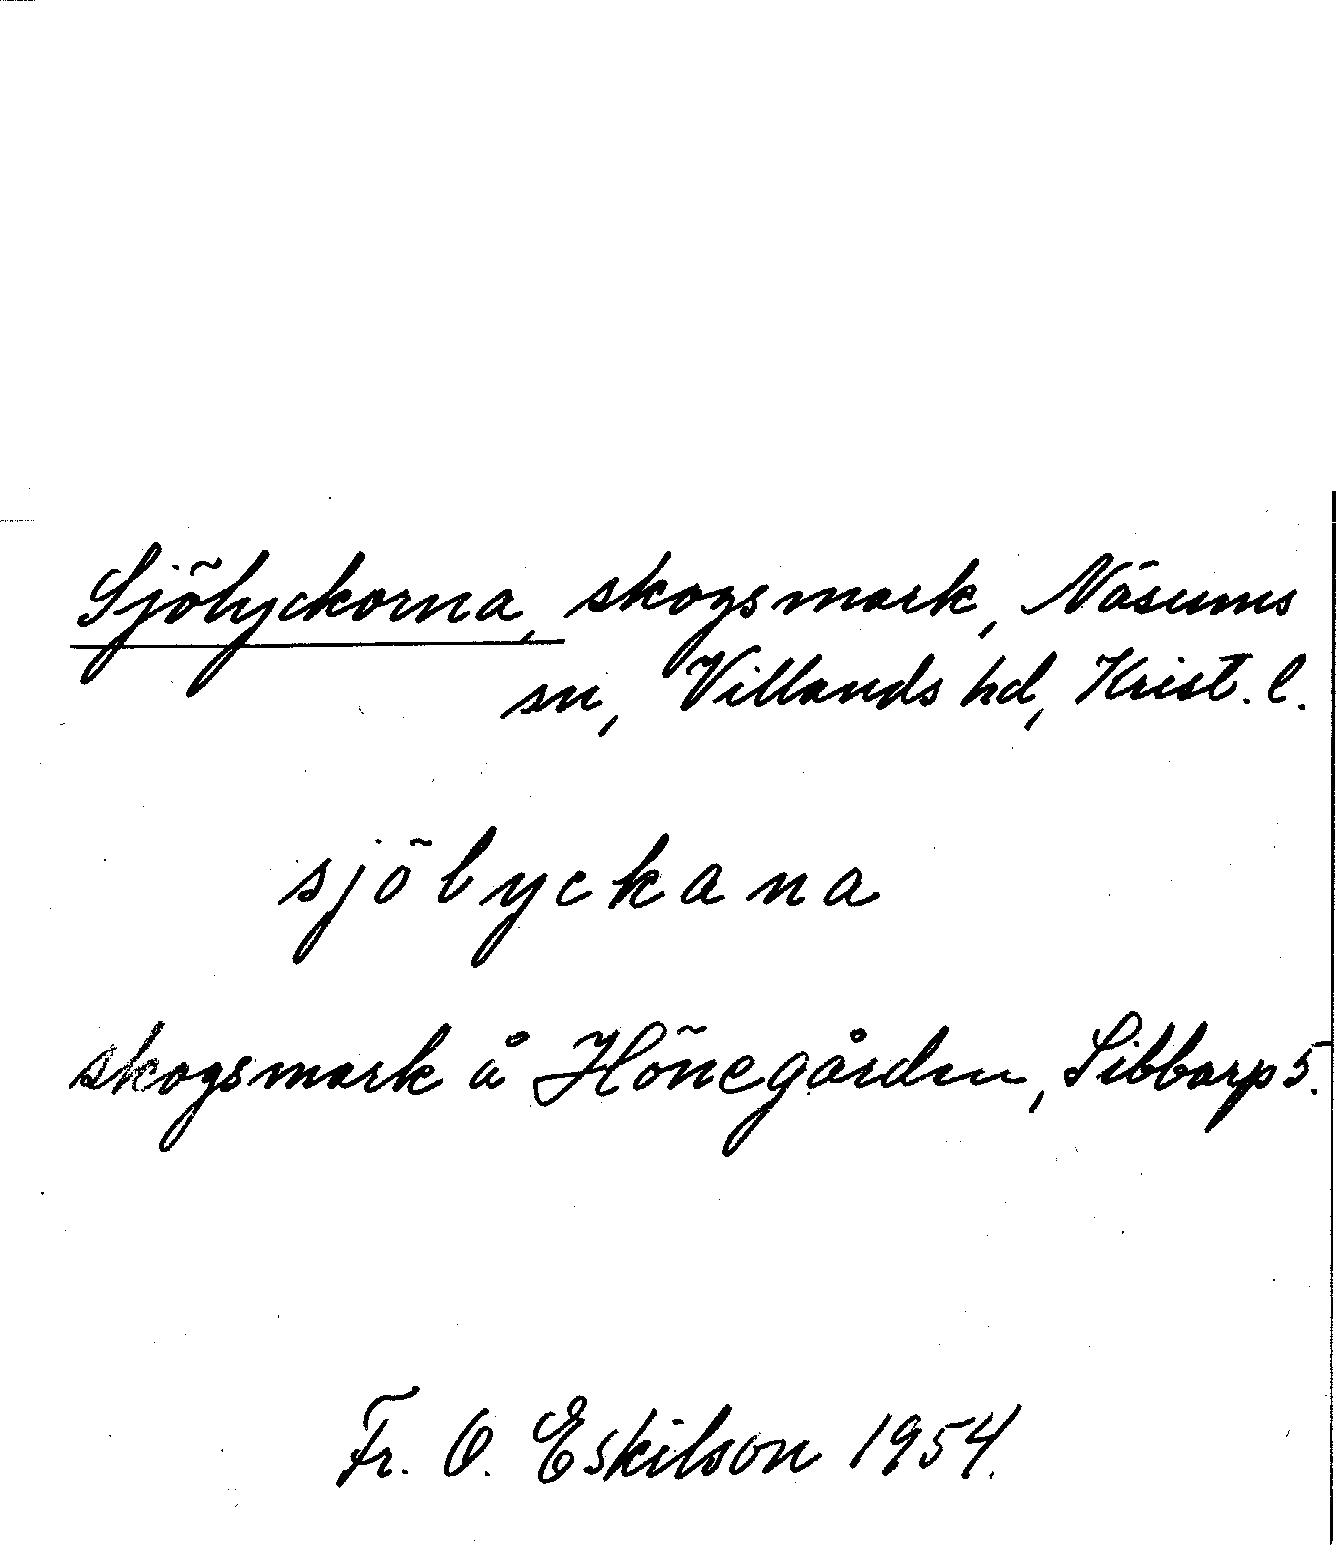 Sjölyckorna, skogsmark, Näsums
sn, Villands hd, Krist. l.
sjölyckana
skogsmark å Hönegården, Sibbarp 5.
Fr. O. Eskilson 1954.